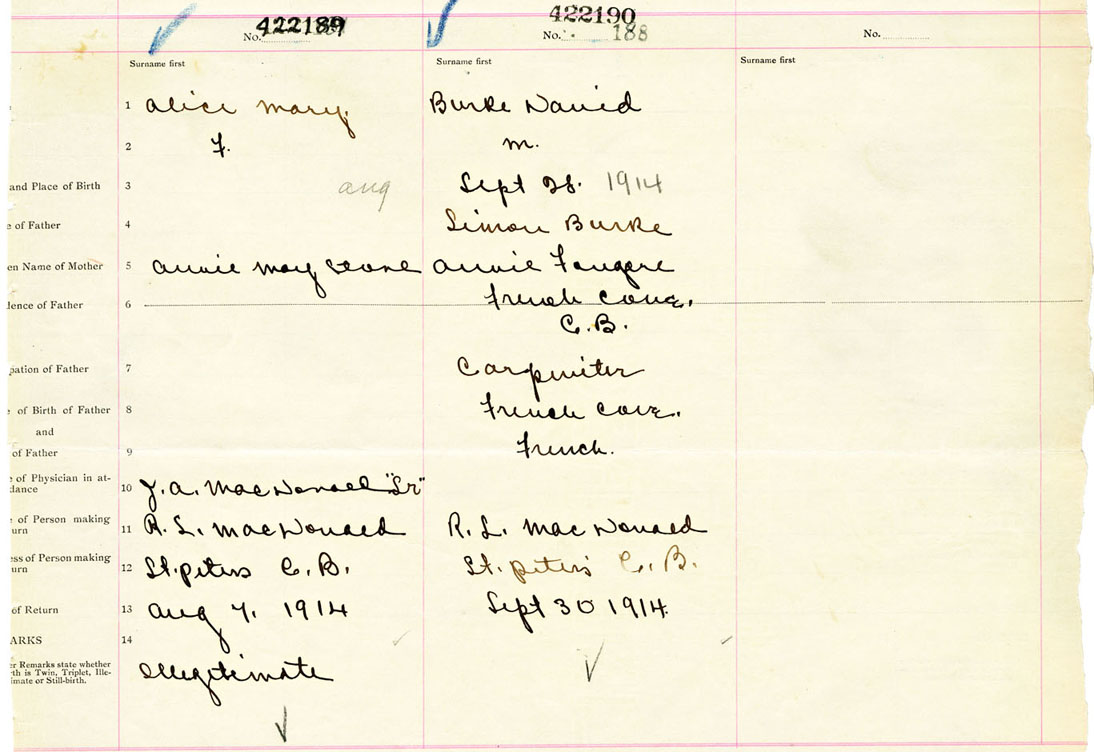 422189
No.
422190
No. 188
No.
Surname first
Surname first
Surname first
1 Alice Mary.
Burke David
2 F.
M.
and Place of Birth 3 Aug
Sept 28. 1914
e of Father 4
Simon Burke
en Name of Mother 5 Annie May Stone
Annie Fougere
dence of Father 6
French Cove,
C.B.
pation of Father 7
Carpenter
of Birth of Father 8
French Cove.
and
of Father 9
French.
e of Physician in at-
dance 10 J. A. MacDonald "Sr"
e of Person making
urn 11 R. L. MacDonald
R. L. MacDonald
ess of Person making
urn 12 St. peters C. B.
St. peters C. B.
of Return 13 Aug 7, 1914
Sept 30 1914
ARKS 14
er Remarks state whether
th is Twin, Triplet, Ille-
imate or Still-birth.
Illegitimate